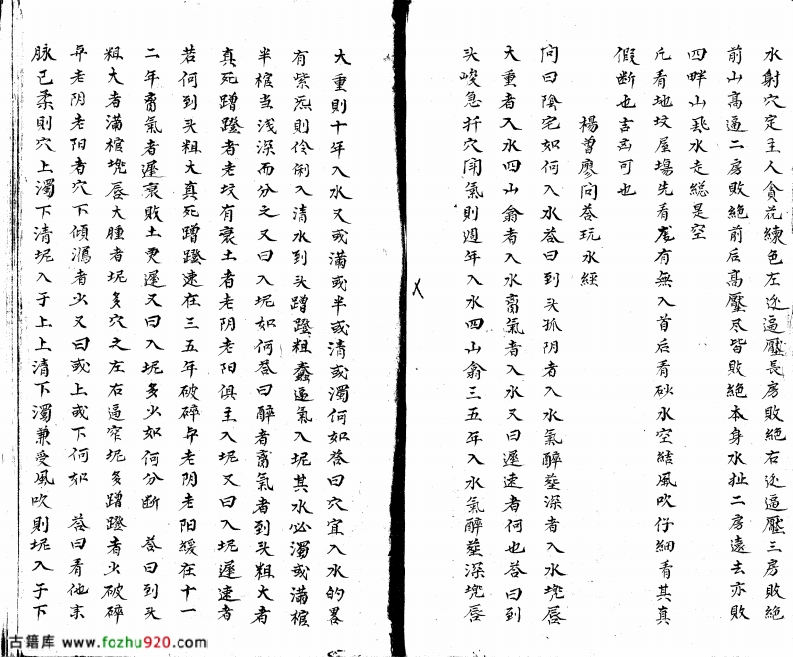 水射穴定主人貪花練色左边逼壓長房敗絕右边逼壓三房敗絕
前山高逼二房敗絕前后高壓尽皆敗絕本身水扯二房遠去亦敗
四畔山飛水走総是空
凡看地坟屋場先看龙有無入首后看砂水空結風吹仔細看其真
假断也言而可也
楊曾廖问荅玩水經
问曰陰宅如何入水荅曰到头孤阴者入水氣醉葬深者入水塊唇
大重者入水四山翕者入水脔氣者入水又曰遲速者何也荅曰到
头峻急扦穴闭氣則週年入水四山翕三五年入水氣醉葬深塊唇
大重則十年入水又或滿或半或清或濁何如荅曰穴宜入水的畧
有紫炁則伶俐入清水到头蹭蹬粗蠢逼氣入坭其水必濁或滿棺
半棺当浅深而分之又曰入坭如何荅曰醉者脔氣者到头粗大者
真死蹭蹬者老坟有衰土者老阴老阳俱主入坭又曰入坭遲速者
若何到头粗大真死蹭蹬速在三五年破碎弁老阴老阳緩在十一
二年脔氣者遲衰敗土更遲又曰入坭多少如何分断 荅曰到头
粗大者滿棺塊唇大腫者坭多穴之左右逼窄坭多蹭蹬者少破碎
弁老阴老阳者穴下傾瀉者少又曰或上或下何如 荅曰看他来
脉已柔則穴上濁下清坭入于上上清下濁兼受風吹則坭入于下
古籍库 www.fozhu920.com